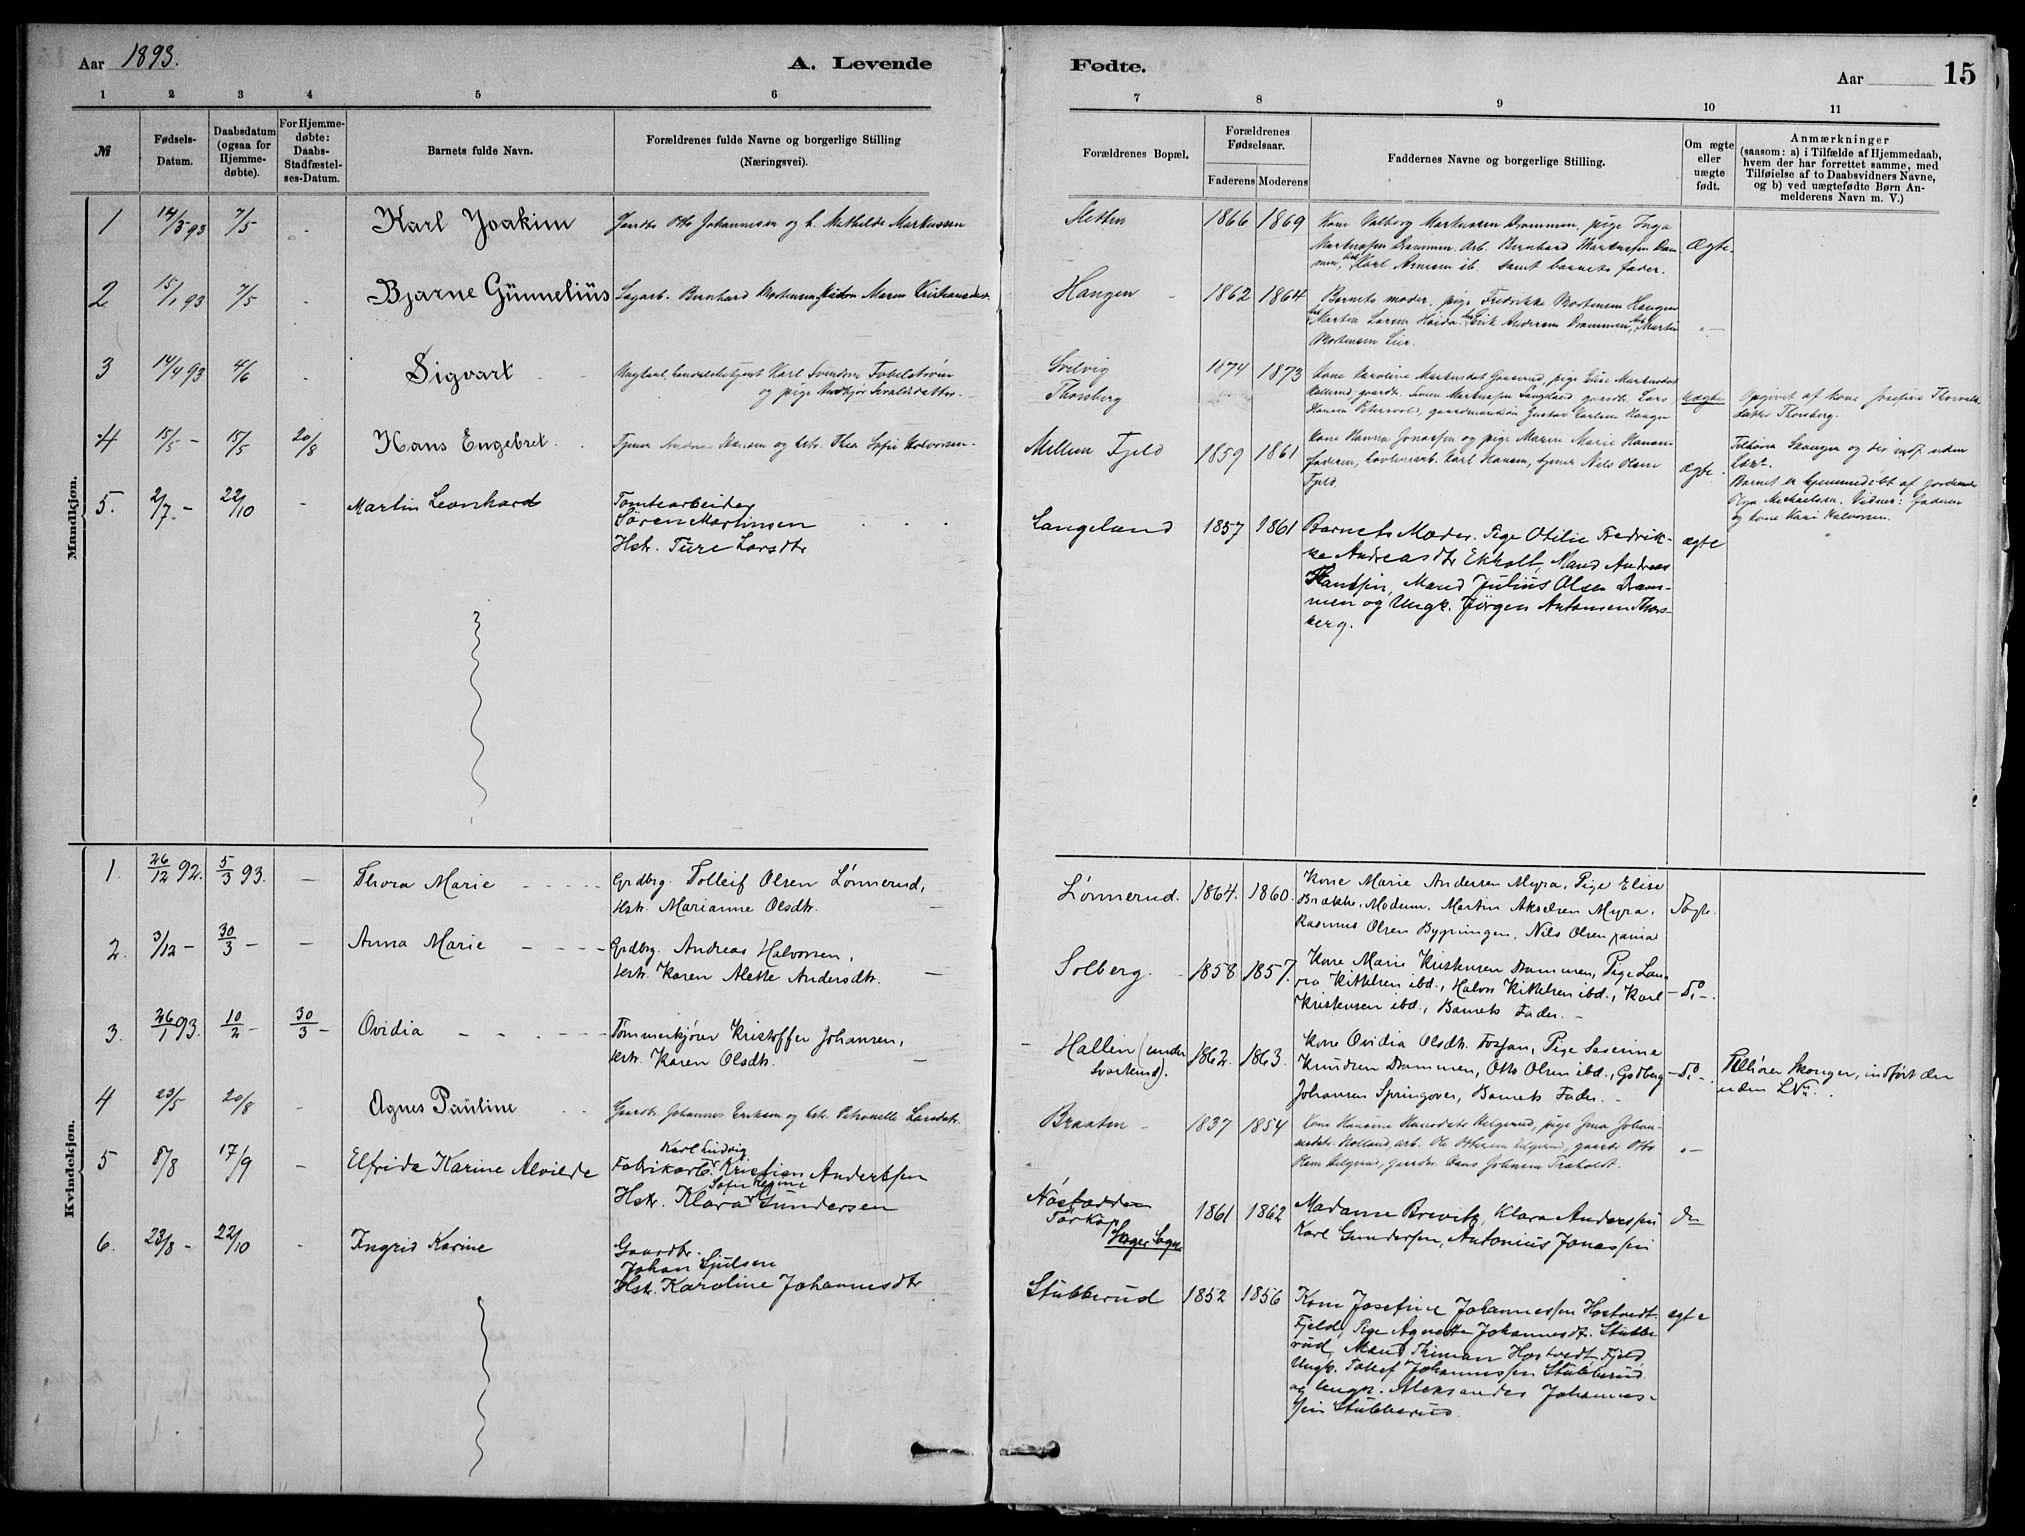 Aar 1893.
A. Levende
Fødte.
Aar
15
1 2 3 4 5 6
7 8 9 10 11
№
Fødsels-
Datum.
Daabsdatum
(ogsaa for
Hjemme-
døbte).
For Hjemme-
døbte:
Daabs-
Stadfæstel-
ses-Datum.
Barnets fulde Navn.
Forældrenes fulde Navne og borgerlige Stilling
(Næringsvei).
Forældrenes Bopæl.
Forældrenes
Fødselsaar.
Faderens Moderens
Faddernes Navne og borgerlige Stilling.
Om ægte
eller
uægte
født.
Anmærkninger
(saasom: a) i Tilfælde af Hjemmedaab,
hvem der har forrettet samme, med
Tilføielse af to Daabsvidners Navne,
og b) ved uægtefødte Børn An-
melderens Navn m. V.)
Mandkjøn.
1 14/3 93 7/5 - Karl Joakim
Gaardbr. Otto Johannesen og h. Mathilde Markussen
1866 1869
Kone Valborg Markussen Drammen, pige Inga
Markussen Drammen. Arb. Bernhard Markussen Dram-
men, Karl Arnesen ib. samt barnets fader.
Ægte
2 15/1 93 7/5 - Bjarne Günnelius
Sagarb. Bernhard Mortensen Maren Kristiansdtr.
Haugen - 1862 1864
Barnets moder, pige Fredrikke Mortensen Haugen
Martin Larsen Erik Andersen Drammen, Martin
Mortensen Lier.
-"-
3 14/4 93 4/6 - Sigvart
Karl Svendsen
og pige
Svelvig
Thorsberg
1874 1873
Kone Karoline Markusdat pige Elise Markusdat
Lars
Hansen Gustav Karlsen Haugen
uægte
Opgivet af kone Josefine Thorvalds-
datter Thorsberg.
4 15/5 - 15/5 20/8 Hans Engebret
Tjener Hansen og hstr. Thea Sofie Halvorsen
Mellem Fjeld 1859 1861
Kone Hanna Jonassen og pige Maren Marie Hansen
faderen, Karl Hansen, tjener Nils Olsen
Fjeld.
Ægte
Tilhører Skouger og her indf. uden
Barnet er hjemmedøbt af jordemoder
Olga Michaelsen. Vidner: Faderen
og kone Kari Halvorsen.
5. 2/7 - 22/10 - Martin Leonhard
Tomtearbeider
Søren Martinsen
Hstr. Ture Larsdtr
Langeland 1857 1861
Barnets Moder. Pige Otilie Fredrik-
ke Andreasdtr Ekholt, Mand Andreas
Hansen, Mand Julius Olsen Dram-
men og Ungk. Jörgen Antonsen Thors-
berg.
ægte
Kvindekjøn.
1. 26/12 92. 5/3 93. - Thora Marie
Grdbrg. Tolleif Olsen Lønnerud,
Hstr. Marianne Olsdtr.
Lønnerud. 1864. 1860.
Kone Marie Andersen Myra, Pige Elise
Brække, Modum. Martin Akselsen Myra,
Rasmus Olsen Bygningen, Nils Olsen
Ægte.
2. 3/12 - 30/3 - - Anna Marie
Grdbrg. Andreas Halvorsen,
Hstr. Karen Alette Andersdtr.
Solberg. - 1858 1857.
Kone Marie Kristensen Drammen, Pige Lau-
ra Kittelsen ibd., Halvor Kittelsen ibd., Karl
Kristensen ibd., Barnets Fader. -
- Do -.
3. 26/1 93. 10/2 - 30/3 - Ovidia
Tømmerkjører Kristoffer Johansen,
Hstr. Karen Olsdtr.
Hallin (under
Svarterud). 1862. 1863.
Kone Ovidia Olsdtr. Fossan, Pige Seserine
Knudsen Drammen, Otto Olsen ibd., Godberg
Johansen Springover, Barnets Fader. -
- Do -.
Tilhører Skouger, indført her
uden LNr.
4 23/5 20/8 - Agnes Pauline
Gaardbr. Johannes Eriksen og hstr. Petronelle Larsdatr.
Braaten - 1837 1854
Kone Hansine Hansdatr Helgerud, pige Johan-
nesdatr Holland, arb. Ole Helgerud, gaardbr Otto
Olsen Helgerud, gaardbr. Hans Johnsen Træholdt.
-"-
5 8/8 17/9 Elfrida Karine Alvilde
Karl Ludvig
Fabrikarb. Kristian Anderssen
Sofie Regine
Hstr. Klara Gundersen
Nøstodden
Tørkop
Skoger Sogn
1861 1862
Madame Brevik, Klara Anderssen
Karl Gunderssen, Antonius Jonassen
do
6. 23/8 - 22/10 - Ingrid Karine
Gaardbr.
Johan Sjulsen
Hstr. Karoline Johannesdtr
Stubberud 1852 1856
Kone Josefine Johannessen Hostvedt
Fjeld, Pige Agnette Johannesdtr. Stubbe-
rud, Mand Thiman Hostvedt Fjeld,
Ungk. Tollef Johannessen Stubberud
og Ungk. Aleksander Johannes-
sen Stubberud.
ægte